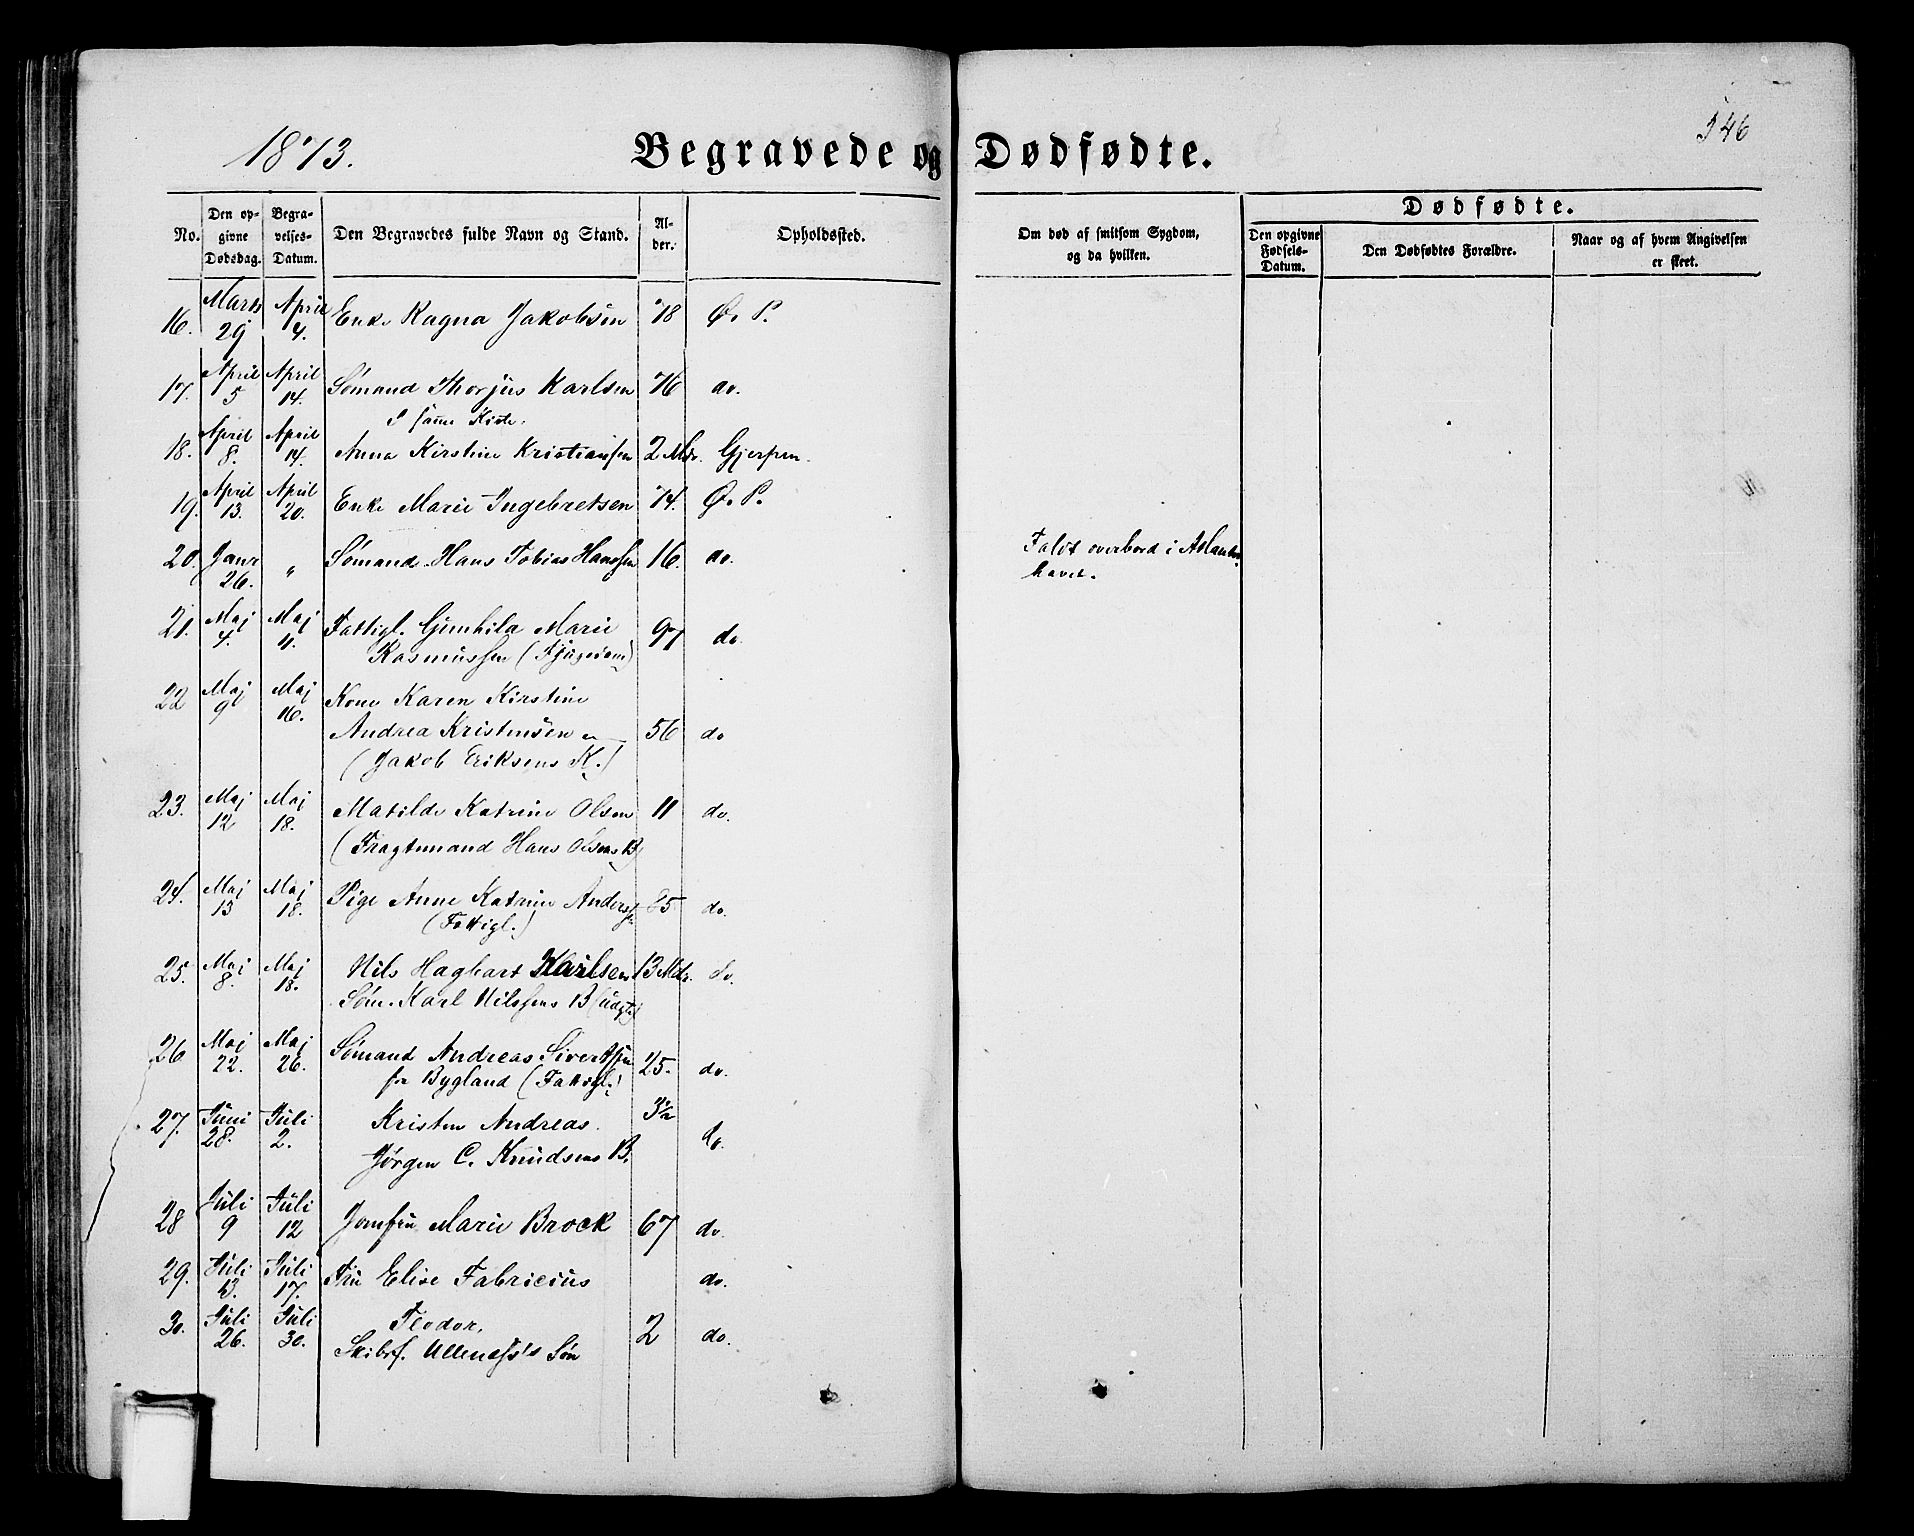 1873.
Begravede og Dødfødte.
546
No.
Den opgivne Dødsdag.
Begravelses-Datum.
Den Begravedes fulde Navn og Stand.
Alder.
Opholdssted.
Om død af smitsom Sygdom, og da hvilken.
Dødfødte.
Den opgivne Fødsels-Datum.
Den Dødfødtes Forældre.
Naar og af hvem Angivelsen er skeet.
16. Marts 29 April 4. Enke Ragna Jakobsen 78 Ø. P.
17. April 5 April 14. Sømand Thorjus Karlsen 76 do.
I samme Kiste.
18. April 8. April 14. Anna Kirstine Kristiansen 2 Mdr. Gjerpen.
19. April 13. April 20. Enke Marie Ingebretsen 74. Ø. P.
20. Janr 26. " Sømand Hans Tobias Hanssen 16. do. Faldt overbord i Atlanter-
havet.
21. Maj 4. Maj 11. Fattigl. Gunhild Marie 97 do.
Rasmussen
22 Maj 9 Maj 16. Kone Karen Kirstine
Andrea Kristensen 56 do
(Jakob Eriksens K.)
23. Maj 12 Maj 18. Matilde Katrine Olsen 11 do.
(Fragtemand Hans Olsens B)
24. Maj 13 Maj 18. Pige Anne Katrine Anderss. 85 do.
(Fattigl.)
25. Maj 8. Maj 18. Nils Hagbart Karlsen 13 Mdr. do.
Søm. Karl Nilssens B (uægte)
26 Maj 22. Maj 26. Sømand Andreas Sivertsen 25. do.
fra Bygland (Fattigl.)
27. Juni 28. Juli 2. Kristen Andreas. 3½ do.
Jørgen C. Knudsens B.
28 Juli 9 Juli 12 Jomfru Marie Brock 67 do.
29. Juli 13. Juli 17. Fru Elise Fabricius do.
30. Juli 26. Juli 30. Teodor, 2 do.
Skibsf. Ullenæss's Søn